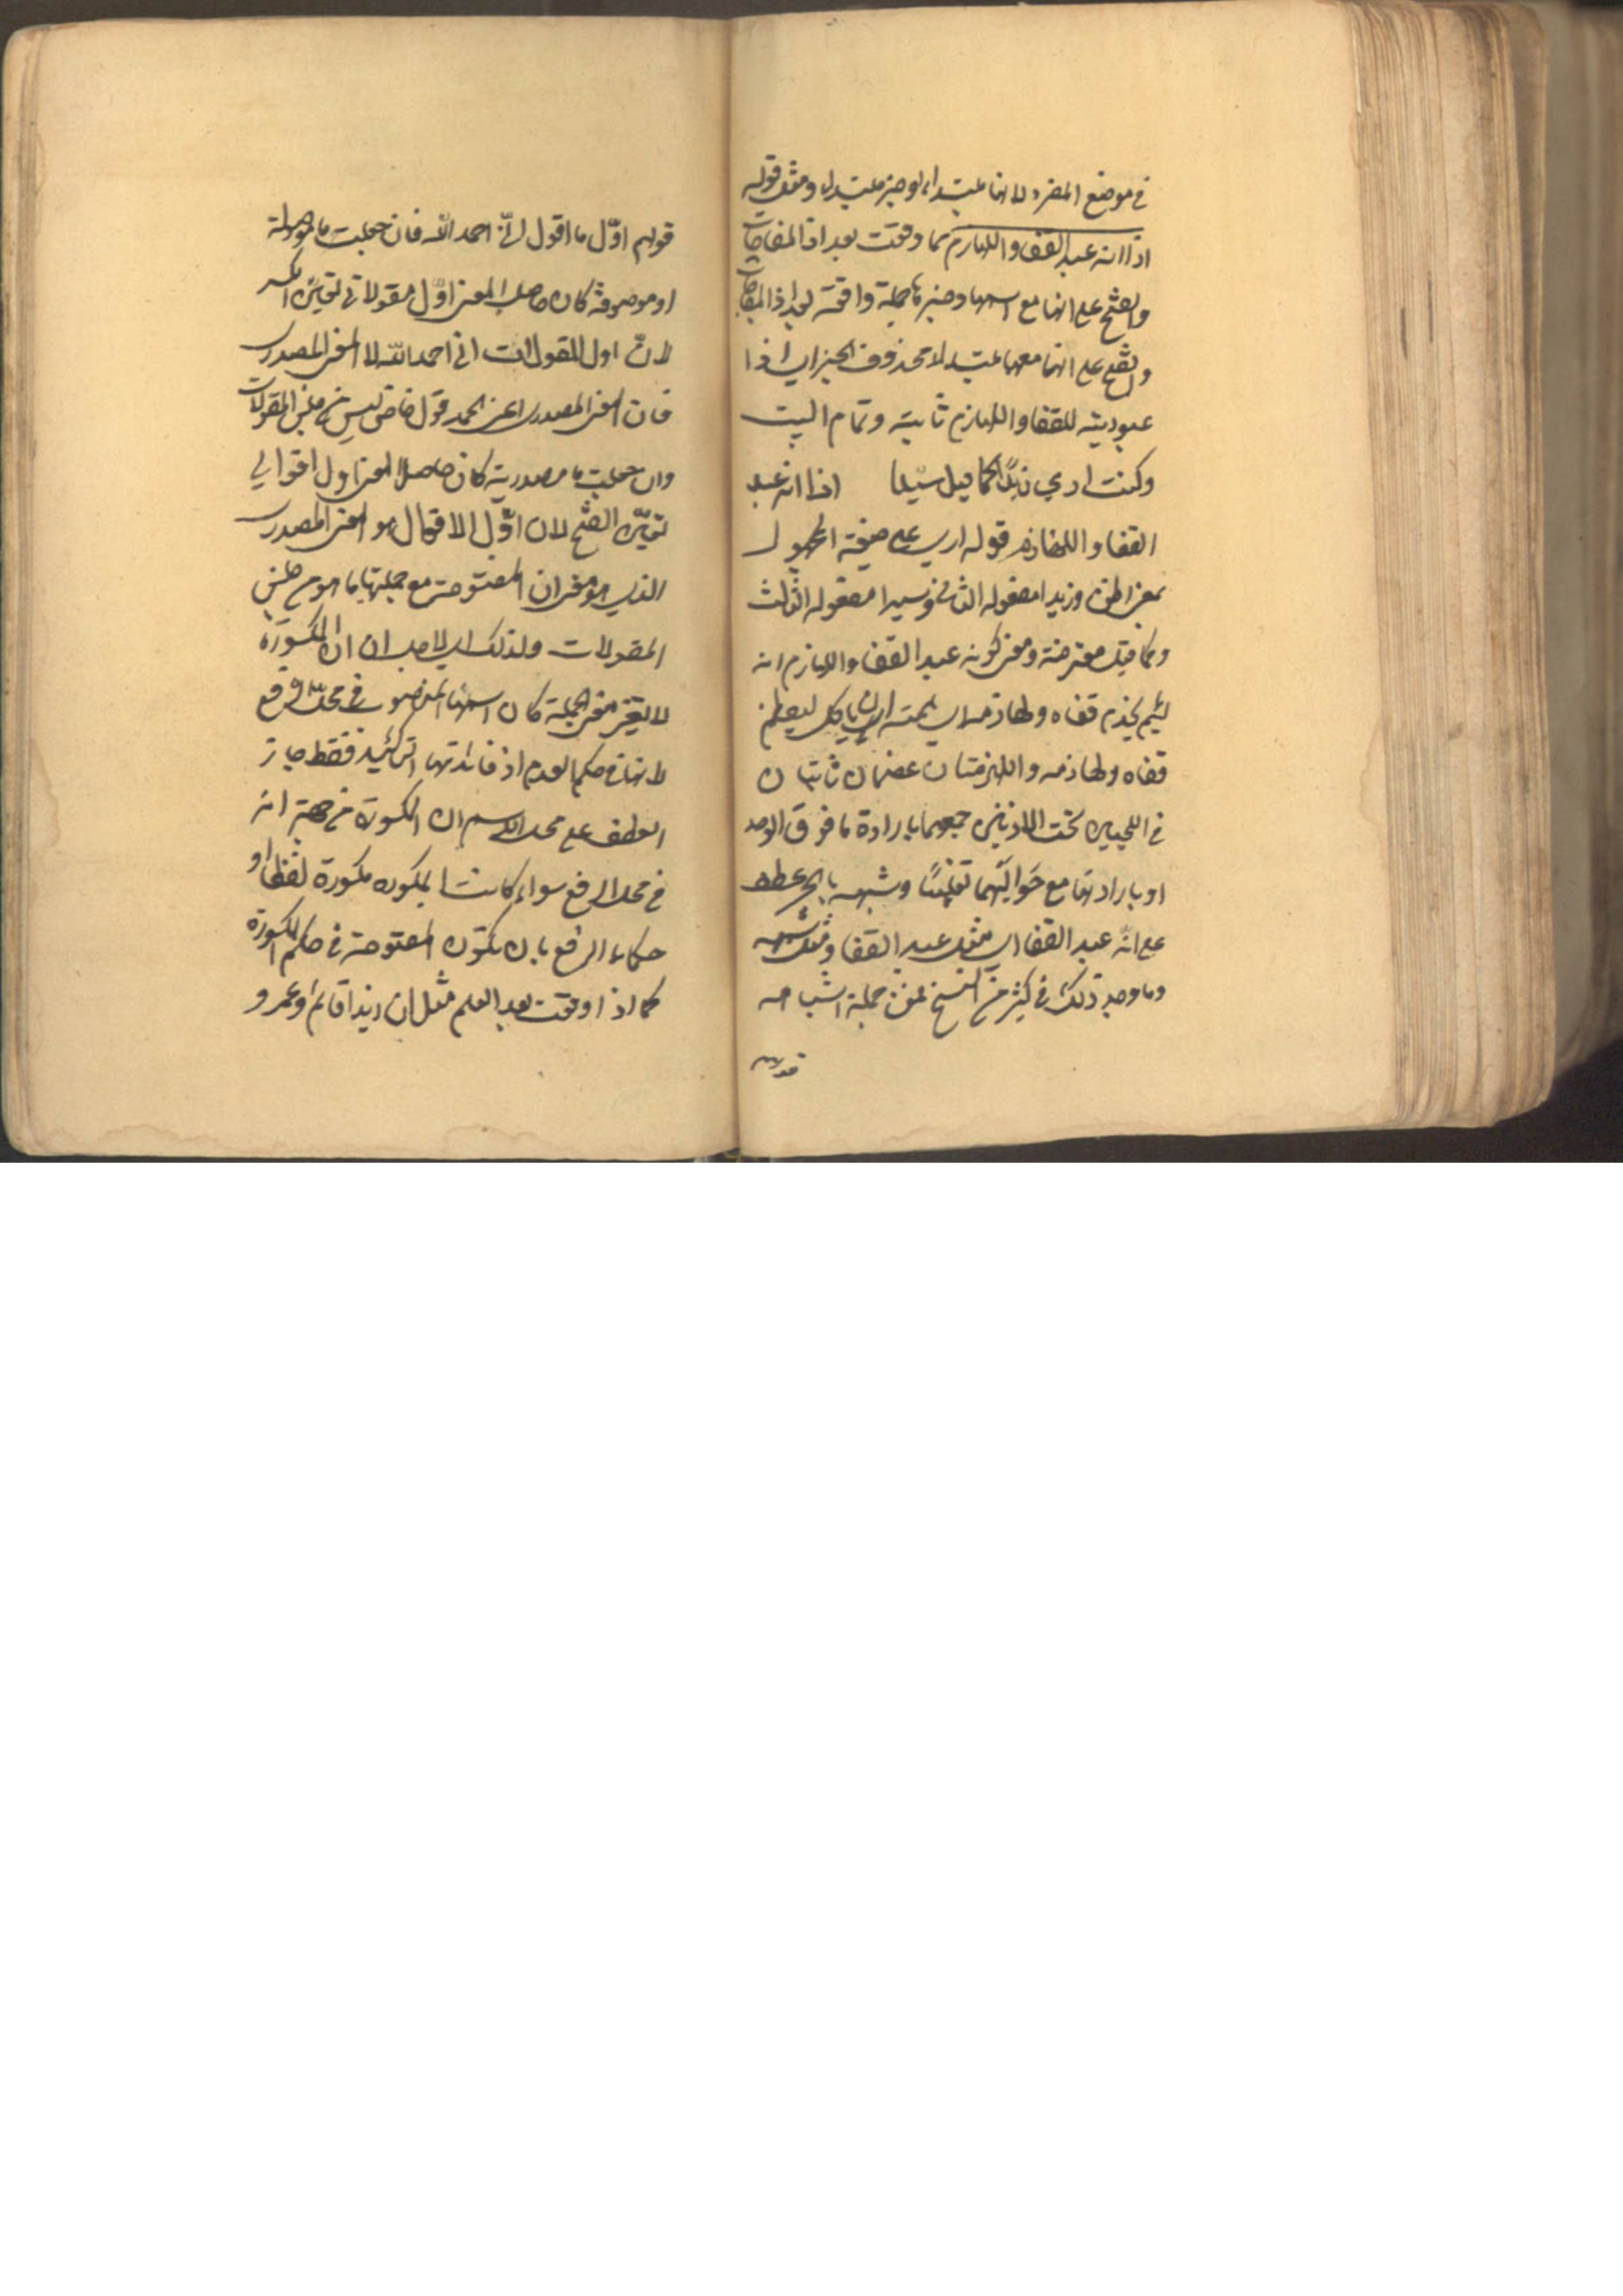 في موضع المفرد لانها مبتداء او خبر مبتداء ومثل قوله
اذا انه عبد القفا واللهازم مما وقعت بعد اذا المفاجات
والفتح على انها مع اسمها وخبرها جملة واقعة بعد اذا المفاجات
والفتح على انها معهما مبتداء محذوف الخبر اي اذا
عبوديته للقفا واللهازم ثابتة وتمام البيت
وكنت ارى زيدًا كما قيل سيدا اذا انه عبد
القفا واللهازم قوله ارى على صيغة المجهول
بمعنى اظن وزيدا مفعوله الثاني وسيدا مفعوله الثالث
وكما قيل معترضة ومعنى كونه عبد القفا واللهازم انه
لئيم يخدم قفاه ولهازمه اي همته ان ياكل ليعظم
قفاه ولهازمه واللهزمتان عظمان ناتيان
في اللحيين تحت الاذنين جمعهما بارادة ما فوق الواحد
او بارادتهما مع حواليهما تغليبًا وشبهه بالجر عطف
على انه عبد القفا اي مثل عبد القفا ومثل شبهه
وما وجد ذلك في كثير من النسخ فمن جملة اشباهه
قولهم
قولهم اوّل ما اقول انّي احمد الله فان جعلت ما موصولة
او موصوفة كان حاصل المعنى اوّل مقولاتي تعيّن الكسر
لانّ اول المقولات اني احمد الله لا المعنى المصدري
فان المعنى المصدري اعني الحمد قول خاص ليس من جنس المقولات
وان جعلت ما مصدرية كان حاصل المعنى اول اقوالي
تعيّن الفتح لان اوّل الاقوال هو المعنى المصدري
الذي هو معنى ان المفتوحة مع جملتها لا ما هو من جنس
المقولات ولذلك اي لاجل ان ان المكسورة
لا تغير معنى الجملة كان اسمها المنصوب في محل الرفع
لانها في حكم العدم اذ فائدتها التاكيد فقط جاز
العطف على محل اسم ان المكسورة من جهة انه
في محل الرفع سواء كانت المكسورة مكسورة لفظا او
حكما بالرفع بان تكون المفتوحة في حكم المكسورة
كما اذا وقعت بعد العلم مثل ان زيدا قائم وعمرو